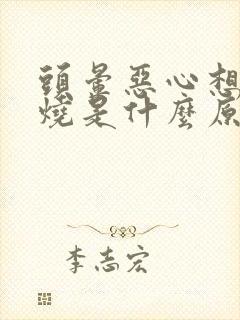 頭暈惡心想
燒是什麼原
李志宏